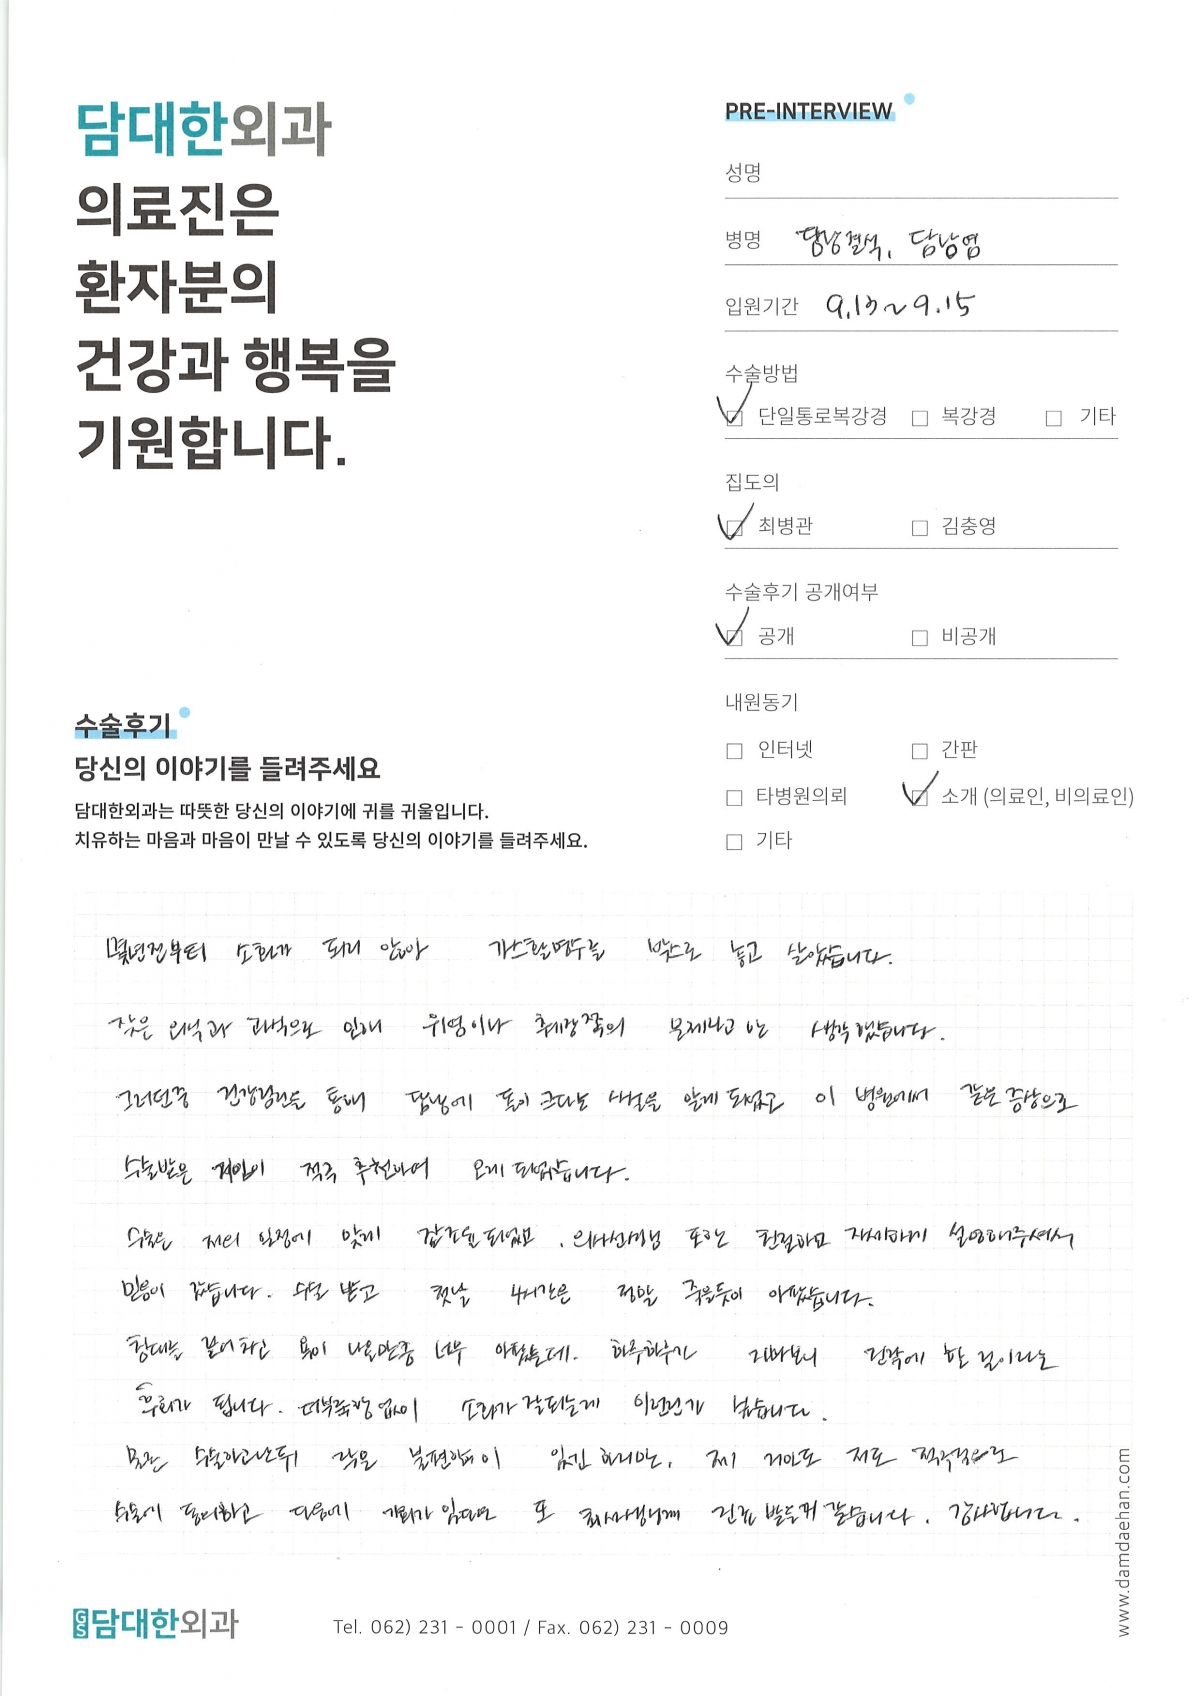 담대한외과
의료진은
환자분의
건강과 행복을
기원합니다.
PRE-INTERVIEW
성명
병명 담낭결석, 담낭염
입원기간 9.13~9.15
수술방법
단일통로복강경 복강경 기타
집도의
최병관 김충영
수술후기 공개여부
공개 비공개
내원동기
인터넷 간판
타병원의뢰 소개 (의료인, 비의료인)
기타
수술후기
당신의 이야기를 들려주세요
담대한외과는 따뜻한 당신의 이야기에 귀를 귀울입니다.
치유하는 마음과 마음이 만날 수 있도록 당신의 이야기를 들려주세요.
몇년전부터 소화가 되지 않아 가스활명수를 박스로 놓고 살았습니다.
잦은 외식과 과식으로 인해 위염이나 췌장쪽의 문제라고 만 생각했습니다.
그러던중 건강검진을 통해 담낭에 돌이 크다는 사실을 알게 되었고 이 병원에서 같은 증상으로
수술받은 지인이 적극 추천하여 오게 되었습니다.
수술은 저의 일정에 맞게 잡아주셨고, 의사선생님 또한 친절하고 자세하게 설명해주셔서
믿음이 갔습니다. 수술 받고 첫날 4시간은 정말 죽을듯이 아팠습니다.
복대를 붙여차고 몸이 나올만큼 너무 아팠는데. 하루하루가 지나보니 진작에 할 걸이라는
후회가 됩니다. 더부룩함 없이 소화가 잘되는게 이런건가 싶습니다.
모든 수술하고난뒤 작은 불편함이 있긴 하지만, 제 지인도 저도 적극적으로
수술에 동의하고 다음에 기회가 있다면 또 의사선생님께 진료 받을거 같습니다. 감사합니다.
담대한외과 Tel. 062) 231 - 0001 / Fax. 062) 231 - 0009
www.damdaehan.com